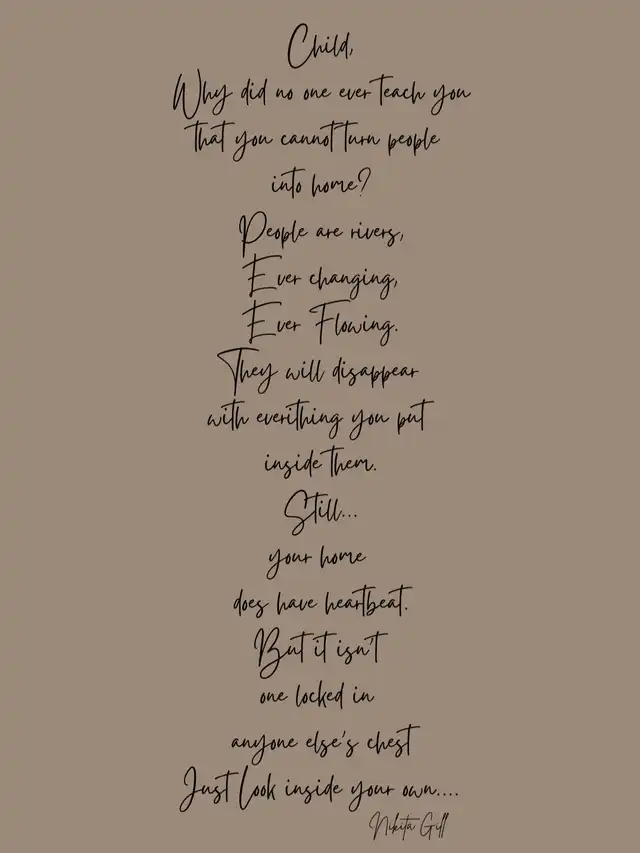 Child,
Why did no one ever teach you
that you cannot turn people
into home?
People are rivers,
Ever changing,
Ever Flowing.
They will disappear
with everithing you put
inside them.
Still...
your home
does have heartbeat.
But it isn't
one locked in
anyone else's chest
Just Look inside your own....
Nikita Gill